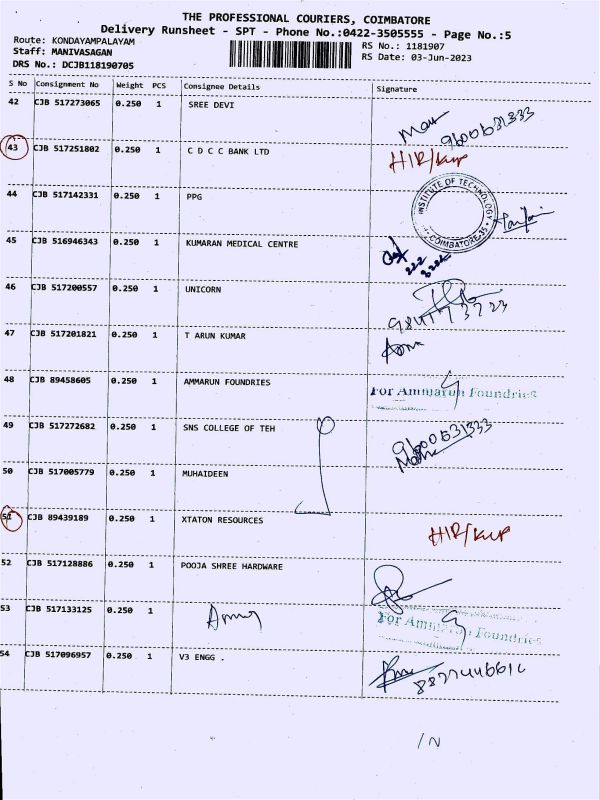 THE PROFESSIONAL COURIERS, COIMBATORE
Delivery Runsheet - SPT - Phone No.:0422-3505555 - Page No.:5
Route: KONDAYAMPALAYAM
Staff: MANIVASAGAN
DRS No.: DCJB118190705
RS No.: 1181907
RS Date: 03-Jun-2023
S No Consignment No Weight PCS Consignee Details Signature
42 CJB 517273065 0.250 1 SREE DEVI
9600631333
43 CJB 517251802 0.250 1 C D C C BANK LTD
44 CJB 517142331 0.250 1 PPG
INSTITUTE OF TECHNOLOGY
COIMBATORE-35
45 CJB 516946343 0.250 1 KUMARAN MEDICAL CENTRE
46 CJB 517200557 0.250 1 UNICORN
47 CJB 517201821 0.250 1 T ARUN KUMAR
48 CJB 89458605 0.250 1 AMMARUN FOUNDRIES
For Ammarun Foundries
49 CJB 517272682 0.250 1 SNS COLLEGE OF TEH
9600631333
50 CJB 517005779 0.250 1 MUHAIDEEN
51 CJB 89439189 0.250 1 XTATON RESOURCES
52 CJB 517128886 0.250 1 POOJA SHREE HARDWARE
53 CJB 517133125 0.250 1
For Ammarun Foundries
54 CJB 517096957 0.250 1 V3 ENGG .
/N